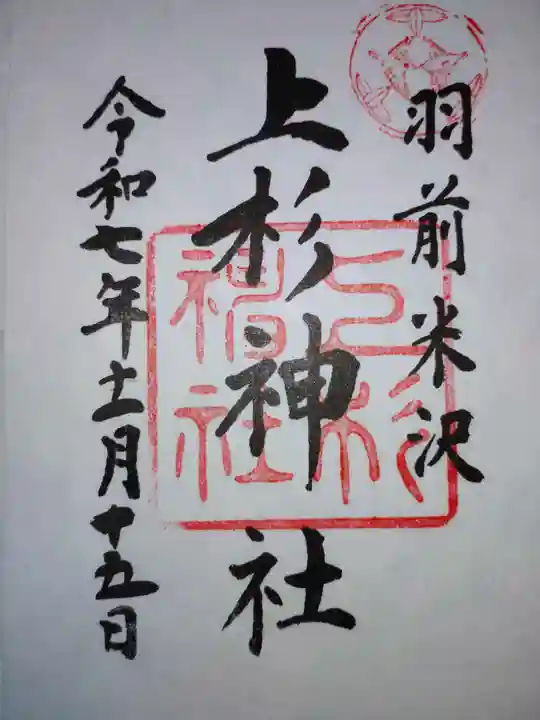 羽前米沢
上杉神社
上杉神社
令和七年十一月十五日